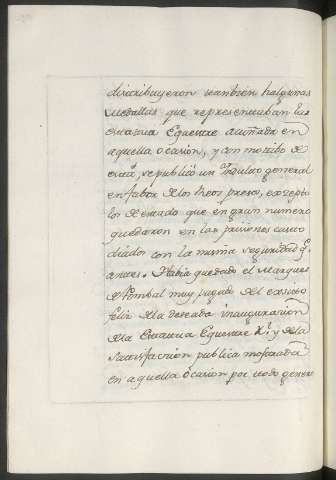 distribuyeron tambien halgunas
Medallas que representaban la
estatua Equestre acuñada en
aquella ocasion, y con motibo de
esta, se publicó un Yndulto general
en fabor de los Reos presos, exzepto
los de estado que en gran numero
quedaron en las prisiones custo
diados con la misma seguridad q.e
antes. Habia quedado el Marques
de Pombal muy pagado del exsito
feliz de la deseada inauguracion
de la Estatua Equestre R.l y de la
Sactisfacion publica mostrada
en aquella ocasion por todo genero